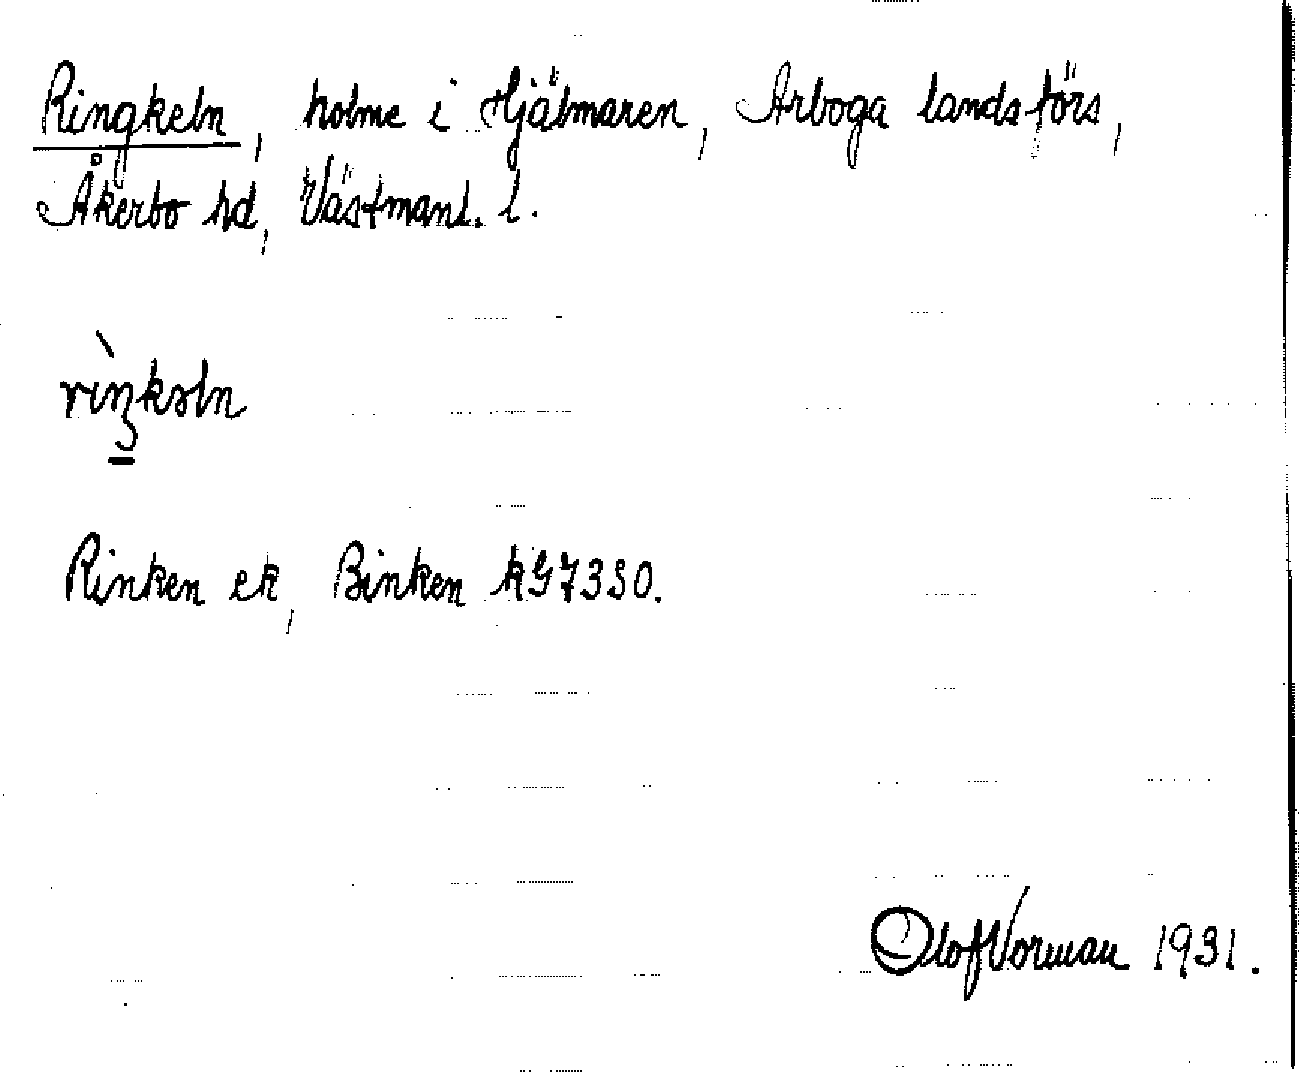 Ringkeln, holme i Hjälmaren, Arboga landsförs,
Åkerbo hd, Västmanl. l.
rìŋkəln
Rinken ek, Binken kG7330.
Olof Vorman 1931.